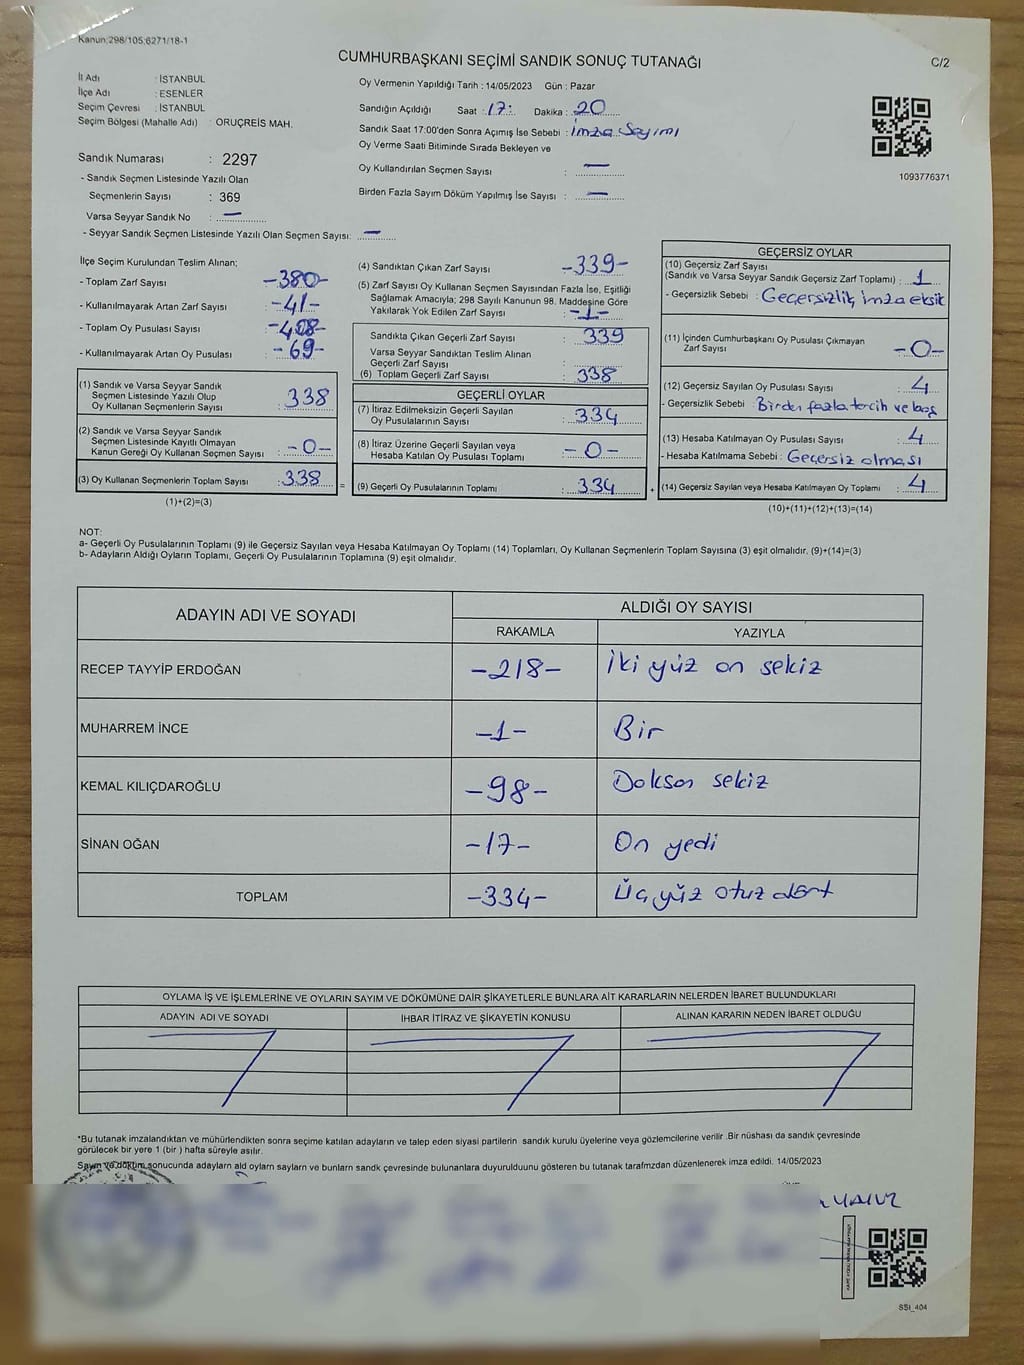 Kanun:298/105:6271/18-1
CUMHURBAŞKANI SEÇİMİ SANDIK SONUÇ TUTANAĞI
C/2
İl Adı : İSTANBUL
İlçe Adı : ESENLER
Seçim Çevresi : İSTANBUL
Seçim Bölgesi (Mahalle Adı) : ORUÇREİS MAH.
Sandık Numarası : 2297
- Sandık Seçmen Listesinde Yazılı Olan
Seçmenlerin Sayısı : 369
Varsa Seyyar Sandık No : —
- Seyyar Sandık Seçmen Listesinde Yazılı Olan Seçmen Sayısı: —
Oy Vermenin Yapıldığı Tarih : 14/05/2023 Gün : Pazar
Sandığın Açıldığı Saat : 17: Dakika : 20
Sandık Saat 17:00'den Sonra Açımış İse Sebebi : İmza Sayımı
Oy Verme Saati Bitiminde Sırada Bekleyen ve
Oy Kullandırılan Seçmen Sayısı : —
Birden Fazla Sayım Döküm Yapılmış İse Sayısı : —
1093776371
İlçe Seçim Kurulundan Teslim Alınan;
- Toplam Zarf Sayısı : -380-
- Kullanılmayarak Artan Zarf Sayısı : -41-
- Toplam Oy Pusulası Sayısı : -408-
- Kullanılmayarak Artan Oy Pusulası : -69-
(1) Sandık ve Varsa Seyyar Sandık
Seçmen Listesinde Yazılı Olup
Oy Kullanan Seçmenlerin Sayısı : 338
(2) Sandık ve Varsa Seyyar Sandık
Seçmen Listesinde Kayıtlı Olmayan
Kanun Gereği Oy Kullanan Seçmen Sayısı : -0-
(3) Oy Kullanan Seçmenlerin Toplam Sayısı : 338 =
(1)+(2)=(3)
(4) Sandıktan Çıkan Zarf Sayısı -339-
(5) Zarf Sayısı Oy Kullanan Seçmen Sayısından Fazla İse, Eşitliği
Sağlamak Amacıyla; 298 Sayılı Kanunun 98. Maddesine Göre
Yakılarak Yok Edilen Zarf Sayısı : -1-
Sandıkta Çıkan Geçerli Zarf Sayısı : 339
Varsa Seyyar Sandıktan Teslim Alınan
Geçerli Zarf Sayısı :
(6) Toplam Geçerli Zarf Sayısı : 338
GEÇERLİ OYLAR
(7) İtiraz Edilmeksizin Geçerli Sayılan
Oy Pusulalarının Sayısı : 334
(8) İtiraz Üzerine Geçerli Sayılan veya
Hesaba Katılan Oy Pusulası Toplamı : -0-
(9) Geçerli Oy Pusulalarının Toplamı : 334 +
GEÇERSİZ OYLAR
(10) Geçersiz Zarf Sayısı
(Sandık ve Varsa Seyyar Sandık Geçersiz Zarf Toplamı) : 1
- Geçersizlik Sebebi : Geçersizlik imza eksik
(11) İçinden Cumhurbaşkanı Oy Pusulası Çıkmayan
Zarf Sayısı -0-
(12) Geçersiz Sayılan Oy Pusulası Sayısı : 4
- Geçersizlik Sebebi : Birden fazla tercih ve boş
(13) Hesaba Katılmayan Oy Pusulası Sayısı : 4
- Hesaba Katılmama Sebebi : Geçersiz olması
(14) Geçersiz Sayılan veya Hesaba Katılmayan Oy Toplamı : 4
(10)+(11)+(12)+(13)=(14)
NOT:
a- Geçerli Oy Pusulalarının Toplamı (9) ile Geçersiz Sayılan veya Hesaba Katılmayan Oy Toplamı (14) Toplamları, Oy Kullanan Seçmenlerin Toplam Sayısına (3) eşit olmalıdır. (9)+(14)=(3)
b- Adayların Aldığı Oyların Toplamı, Geçerli Oy Pusulalarının Toplamına (9) eşit olmalıdır.
ADAYIN ADI VE SOYADI ALDIĞI OY SAYISI
RAKAMLA YAZIYLA
RECEP TAYYİP ERDOĞAN -218- İki yüz on sekiz
MUHARREM İNCE -1- Bir
KEMAL KILIÇDAROĞLU -98- Doksan sekiz
SİNAN OĞAN -17- On yedi
TOPLAM -334- Üç yüz otuz dört
OYLAMA İŞ VE İŞLEMLERİNE VE OYLARIN SAYIM VE DÖKÜMÜNE DAİR ŞİKAYETLERLE BUNLARA AİT KARARLARIN NELERDEN İBARET BULUNDUKLARI
ADAYIN ADI VE SOYADI İHBAR İTİRAZ VE ŞİKAYETİN KONUSU ALINAN KARARIN NEDEN İBARET OLDUĞU
*Bu tutanak imzalandıktan ve mühürlendikten sonra seçime katılan adayların ve talep eden siyasi partilerin sandık kurulu üyelerine veya gözlemcilerine verilir .Bir nüshası da sandık çevresinde
görülecek bir yere 1 (bir ) hafta süreyle asılır.
Sayım ve döküm sonucunda adayların ald oyların sayların ve bunların sandk çevresinde bulunanlara duyurulduunu gösteren bu tutanak tarafmzdan düzenlenerek imza edildi. 14/05/2023
SSI_404